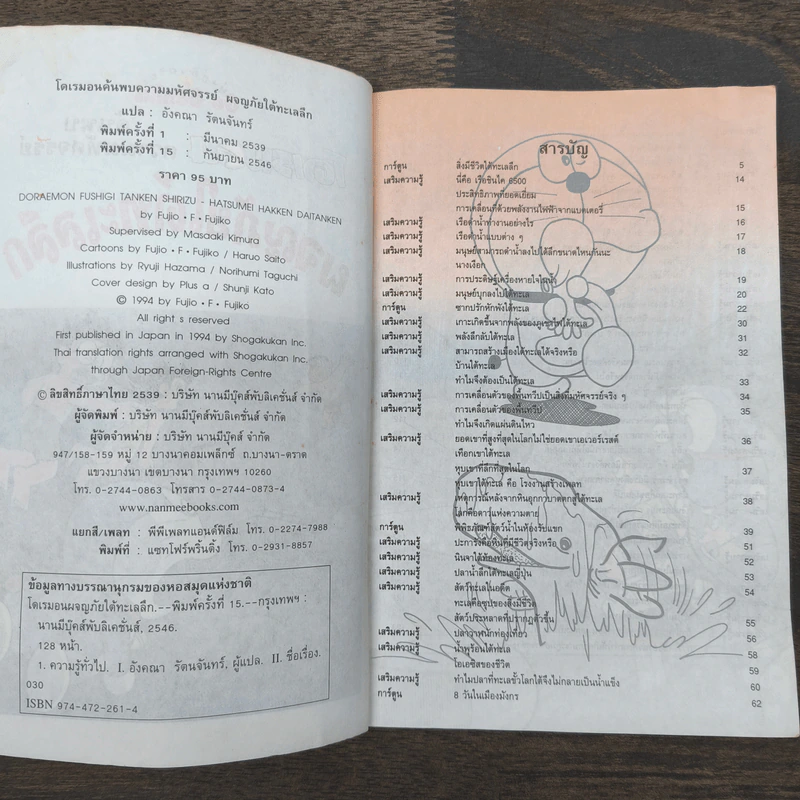 โดเรมอนค้นพบความมหัศจรรย์ ผจญภัยใต้ทะเลลึก
แปล : อังคณา รัตนจันทร์
พิมพ์ครั้งที่ 1 : มีนาคม 2539
พิมพ์ครั้งที่ 15 : กันยายน 2546
ราคา 95 บาท
DORAEMON FUSHIGI TANKEN SHIRIZU - HATSUMEI HAKKEN DAITANKEN
by Fujio • F • Fujiko
Supervised by Masaaki Kimura
Cartoons by Fujio • F • Fujiko / Haruo Saito
Illustrations by Ryuji Hazama / Norihumi Taguchi
Cover design by Plus a / Shunji Kato
© 1994 by Fujio • F • Fujiko
All right s reserved
First published in Japan in 1994 by Shogakukan Inc.
Thai translation rights arranged with Shogakukan Inc.
through Japan Foreign-Rights Centre
© ลิขสิทธิ์ภาษาไทย 2539 : บริษัท นานมีบุ๊คส์พับลิเคชั่นส์ จำกัด
ผู้จัดพิมพ์ : บริษัท นานมีบุ๊คส์พับลิเคชั่นส์ จำกัด
ผู้จัดจำหน่าย : บริษัท นานมีบุ๊คส์ จำกัด
947/158-159 หมู่ 12 บางนาคอมเพล็กซ์ ถ.บางนา-ตราด
แขวงบางนา เขตบางนา กรุงเทพฯ 10260
โทร. 0-2744-0863 โทรสาร 0-2744-0873-4
www.nanmeebooks.com
แยกสี/เพลท : พีพีเพลทแอนด์ฟิล์ม โทร. 0-2274-7988
พิมพ์ที่ : แซทโฟร์พริ้นติ้ง โทร. 0-2931-8857
ข้อมูลทางบรรณานุกรมของหอสมุดแห่งชาติ
โดเรมอนผจญภัยใต้ทะเลลึก.--พิมพ์ครั้งที่ 15.--กรุงเทพฯ :
นานมีบุ๊คส์พับลิเคชั่นส์, 2546.
128 หน้า.
1. ความรู้ทั่วไป. I. อังคณา รัตนจันทร์, ผู้แปล. II. ชื่อเรื่อง.
030
ISBN 974-472-261-4
สารบัญ
การ์ตูน สิ่งมีชีวิตใต้ทะเลลึก 5
เสริมความรู้ นี่คือ เรือชินไค 6500 14
ประสิทธิภาพที่ยอดเยี่ยม
การเคลื่อนที่ด้วยพลังงานไฟฟ้าจากแบตเตอรี่ 15
เสริมความรู้ เรือดำน้ำทำงานอย่างไร 16
เสริมความรู้ เรือดำน้ำแบบต่าง ๆ 17
เสริมความรู้ มนุษย์สามารถดำน้ำลงไปได้ลึกขนาดไหนกันนะ 18
นางเงือก
เสริมความรู้ การประดิษฐ์เครื่องหายใจในน้ำ 19
เสริมความรู้ มนุษย์บุกลงไปใต้ทะเล 20
การ์ตูน ซากปรักหักพังใต้ทะเล 22
เสริมความรู้ เกาะเกิดขึ้นจากพลังของภูเขาไฟใต้ทะเล 30
เสริมความรู้ พลังลึกลับใต้ทะเล 31
เสริมความรู้ สามารถสร้างเมืองใต้ทะเลได้จริงหรือ 32
บ้านใต้ทะเล
ทำไมจึงต้องเป็นใต้ทะเล 33
เสริมความรู้ การเคลื่อนตัวของพื้นทวีปเป็นสิ่งที่มหัศจรรย์จริง ๆ 34
เสริมความรู้ การเคลื่อนตัวของพื้นทวีป 35
ทำไมจึงเกิดแผ่นดินไหว
เสริมความรู้ ยอดเขาที่สูงที่สุดในโลกไม่ใช่ยอดเขาเอเวอร์เรสต์ 36
เทือกเขาใต้ทะเล
หุบเขาที่ลึกที่สุดในโลก 37
หุบเขาใต้ทะเล คือ โรงงานสร้างเพลท
เสริมความรู้ เหตุการณ์หลังจากหินอุกกาบาตตกสู่ใต้ทะเล 38
โลกคือดาวแห่งความตาย
การ์ตูน พิพิธภัณฑ์สัตว์น้ำในห้องรับแขก 39
เสริมความรู้ ปะการังคือหินที่มีชีวิตจริงหรือ 51
เสริมความรู้ นินจาใต้ท้องทะเล 52
เสริมความรู้ ปลาน้ำลึกใต้ทะเลญี่ปุ่น 53
สัตว์ทะเลในอดีต 54
ทะเลคือซุปของสิ่งมีชีวิต
สัตว์ประหลาดที่ปรากฏตัวขึ้น 55
เสริมความรู้ ปลาวาฬนักท่องเที่ยว 56
เสริมความรู้ น้ำพุร้อนใต้ทะเล 58
โอเอซิสของชีวิต 59
เสริมความรู้ ทำไมปลาที่ทะเลขั้วโลกใต้จึงไม่กลายเป็นน้ำแข็ง 60
การ์ตูน 8 วันในเมืองมังกร 62